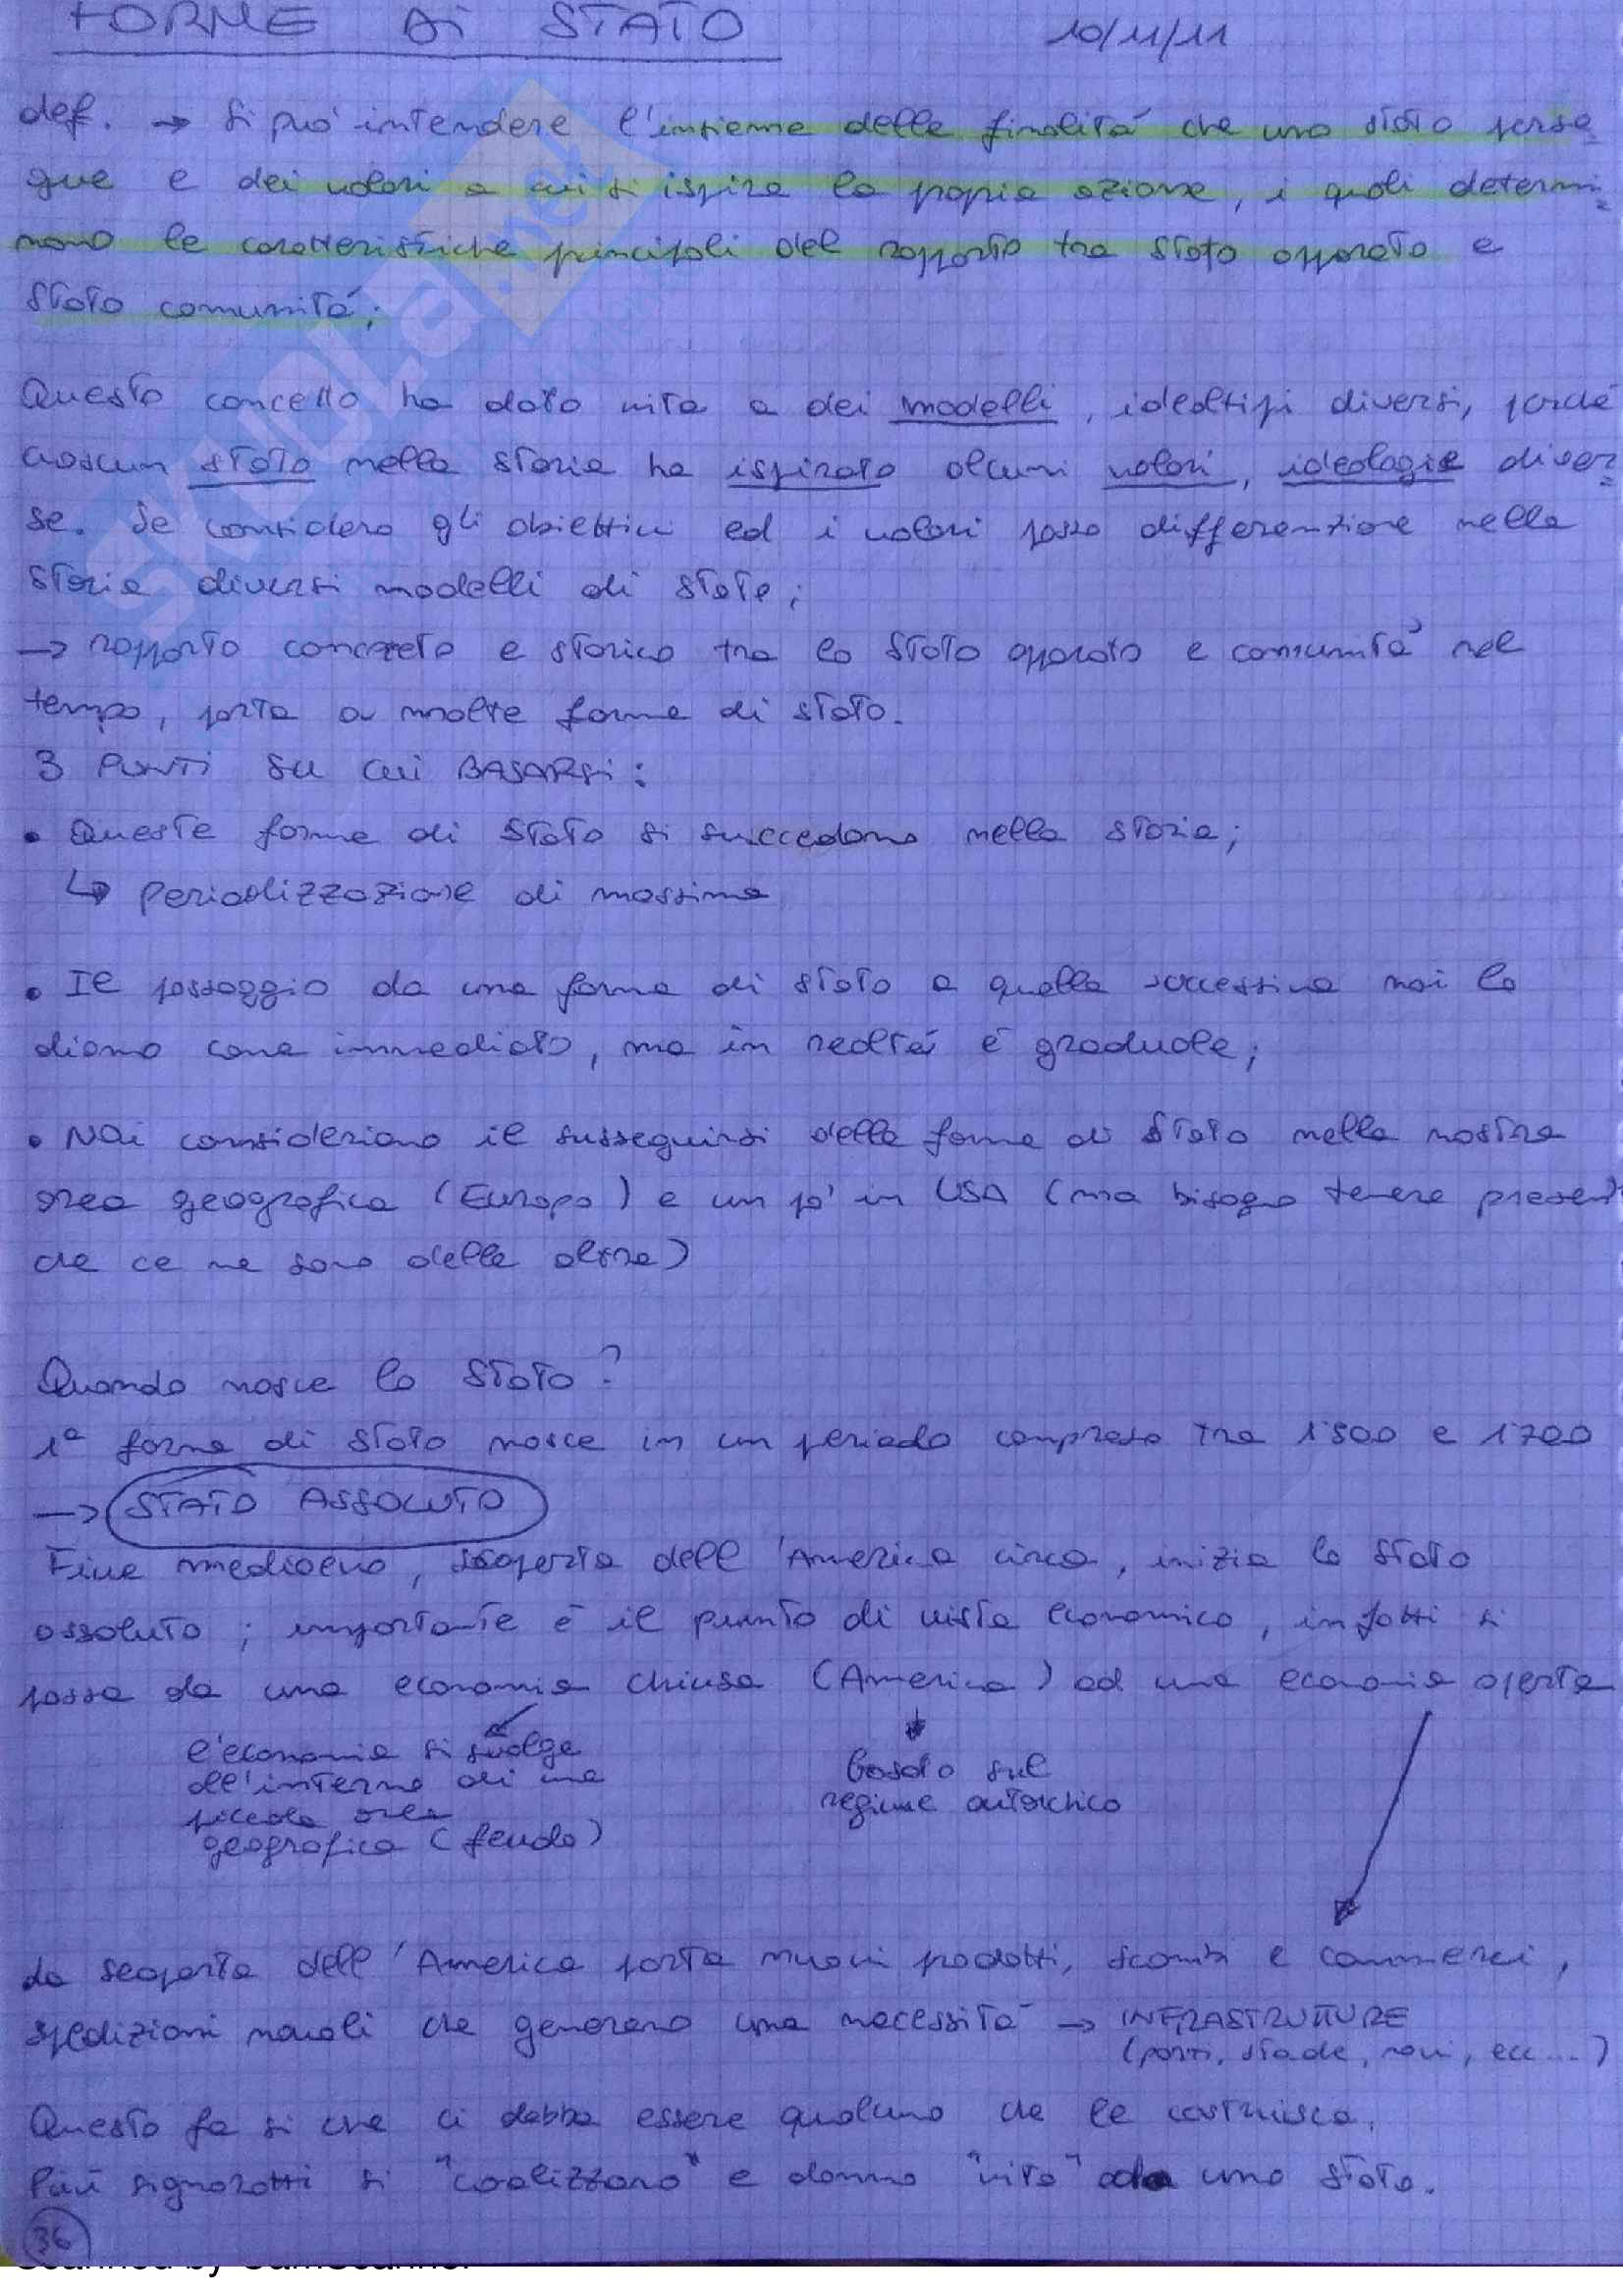 FORME di STATO 10/11/11
def. → Si può intendere l'insieme delle finalità che uno stato perse
gue e dei valori a cui si ispira la propia azione, i quali determi
nano le caratteristiche principali del rapporto tra Stato apparato e
Stato comunità;
Questo concetto ha dato vita a dei modelli, idealtipi diversi, perché
ciascun stato nella storia ha ispirato alcuni valori, ideologie diver
se. Se considero gli obiettivi ed i valori posso differenziare nella
storia diversi modelli di stato;
→ rapporto concreto e storico tra lo Stato apparato e comunità nel
tempo, porta a molte forme di stato.
3 PUNTI su cui BASARSI:
• Queste forme di Stato si succedono nella storia;
↳ Periodizzazione di massima
• Il passaggio da una forma di stato a quella successiva noi lo
diamo come immediato, ma in realtà è graduale;
• Noi consideriamo il susseguirsi delle forme di Stato nella nostra
area geografica (Europa) e un po' in USA (ma bisogna tenere present
che ce ne sono delle altre)
Quando nasce lo Stato?
1ª forma di Stato nasce in un periodo compreso tra 1500 e 1700
→ STATO ASSOLUTO
Fine medioevo, scoperta dell'America circa, inizia lo Stato
assoluto; importante è il punto di vista economico, infatti si
passa da una economia chiusa (America) ad una economia aperta
l'economia si svolge
all'interno di una
piccola area
geografica (feudo)
basato sul
regime autarchico
La scoperta dell'America porta nuovi prodotti, scambi e commerci,
spedizioni navali che generano una necessità → INFRASTRUTTURE
(porti, strade, navi, ecc...)
Questo fa si che ci debba essere qualcuno che le costruisca.
Più signorotti si "coalizzano" e danno "vita" ad uno Stato.
36
Scanned by CamScanner
SKUOLA.net